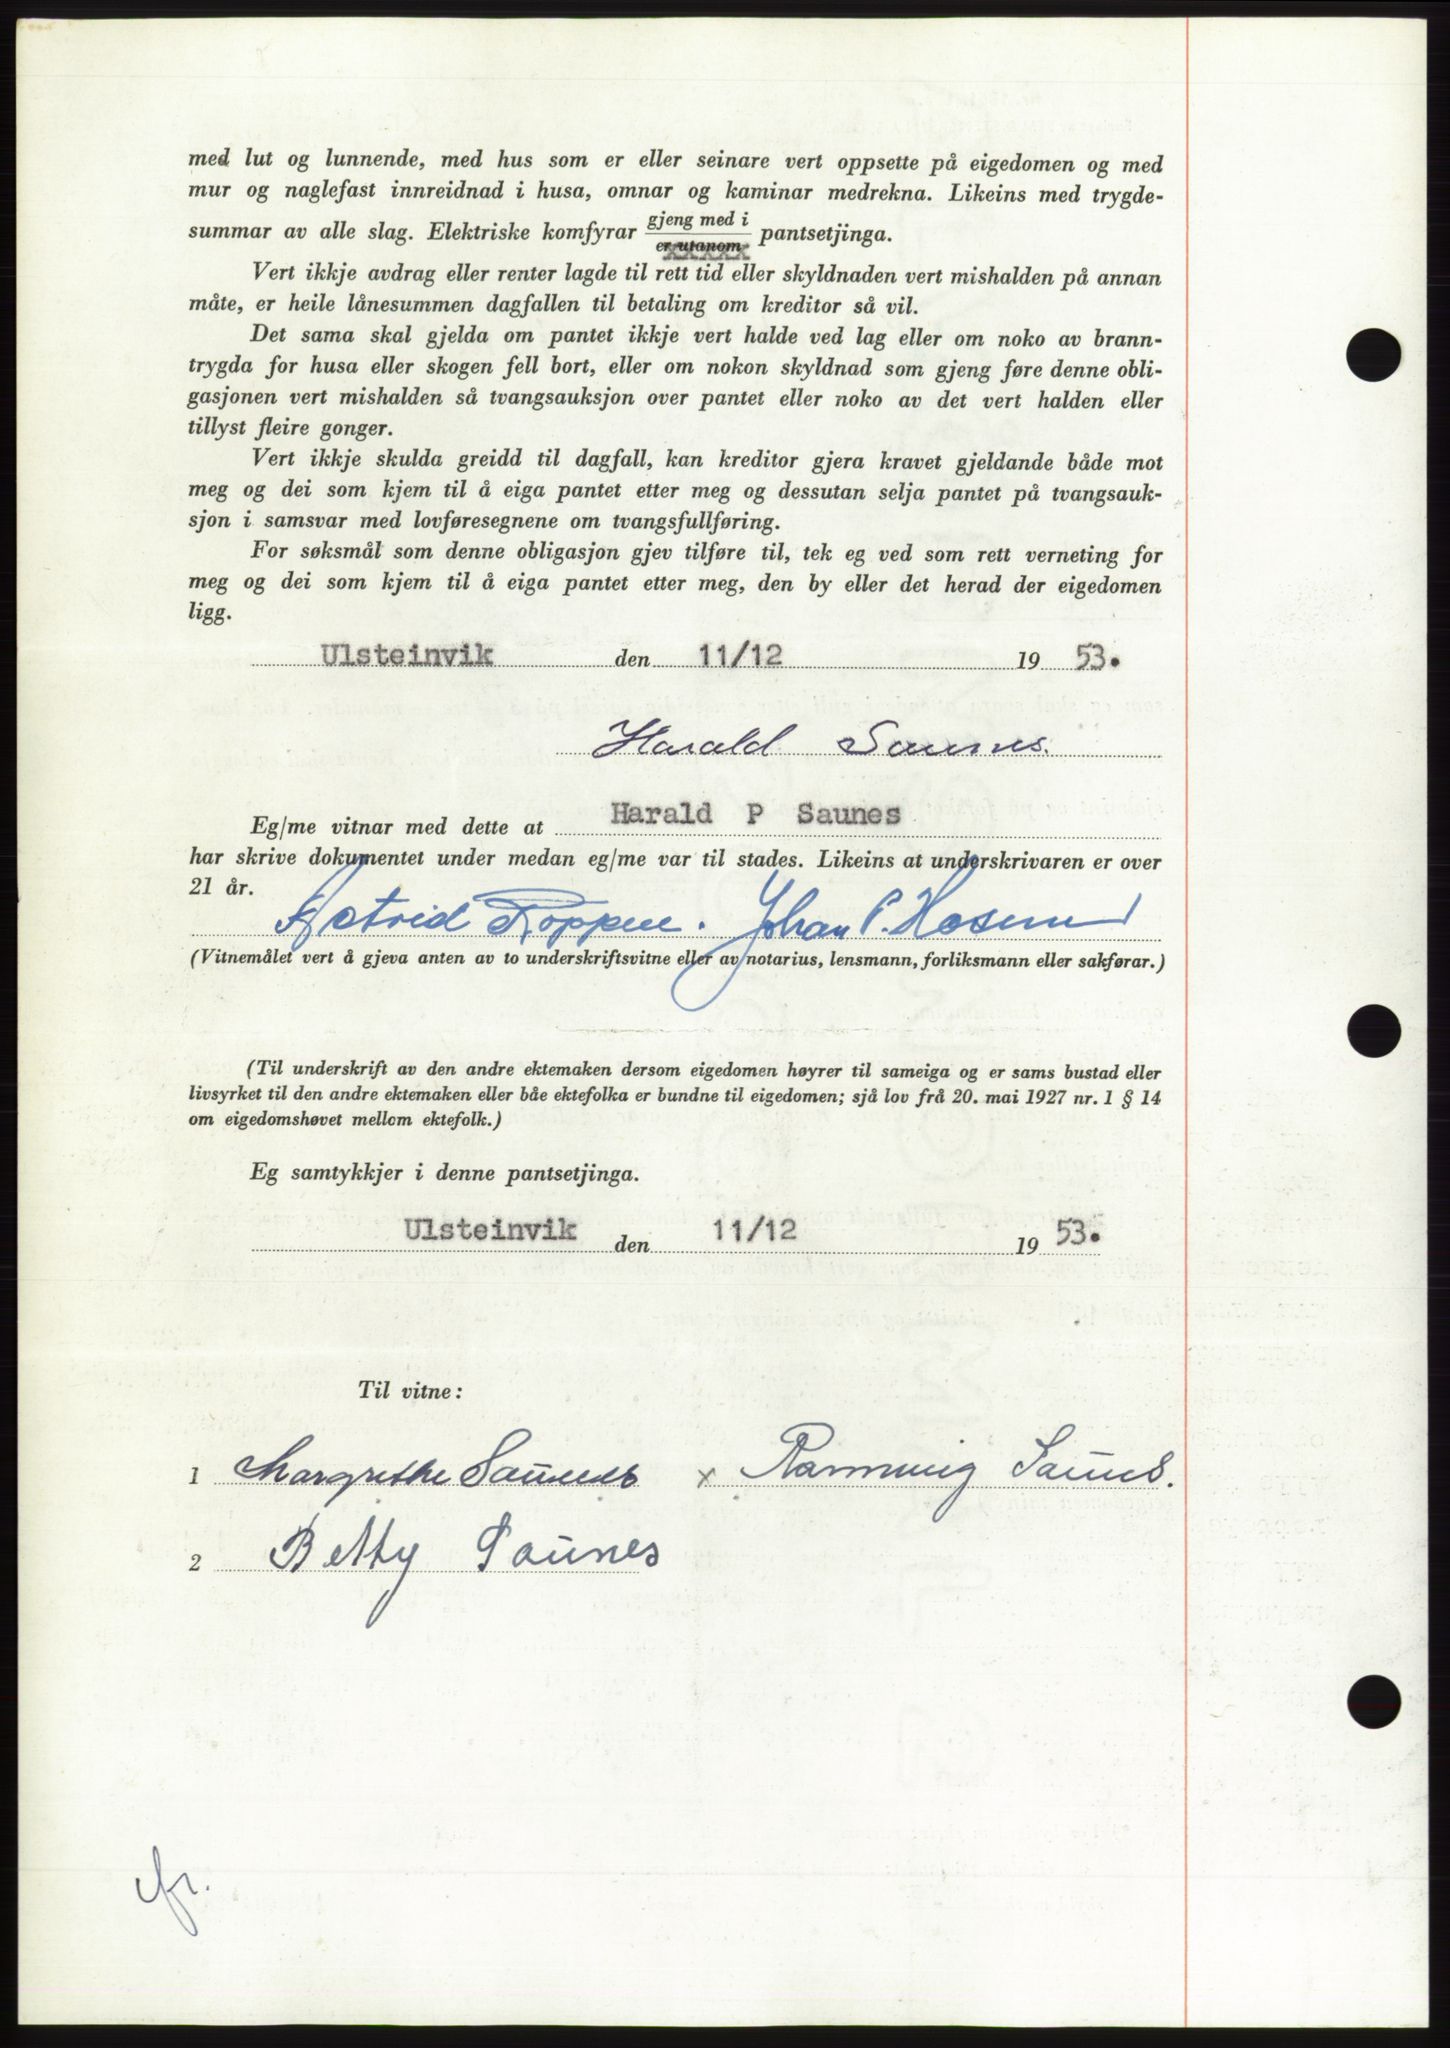 med lut og lunnende, med hus som er eller seinare vert oppsette på eigedomen og med
mur og naglefast innreidnad i husa, omnar og kaminar medrekna. Likeins med trygde-
summar av alle slag. Elektriske komfyrar gjeng med i / er utanom pantsetjinga.
Vert ikkje avdrag eller renter lagde til rett tid eller skyldnaden vert mishalden på annan
måte, er heile lånesummen dagfallen til betaling om kreditor så vil.
Det sama skal gjelda om pantet ikkje vert halde ved lag eller om noko av brann-
trygda for husa eller skogen fell bort, eller om nokon skyldnad som gjeng føre denne obli-
gasjonen vert mishalden så tvangsauksjon over pantet eller noko av det vert halden eller
tillyst fleire gonger.
Vert ikkje skulda greidd til dagfall, kan kreditor gjera kravet gjeldande både mot
meg og dei som kjem til å eiga pantet etter meg og dessutan selja pantet på tvangsauk-
sjon i samsvar med lovføresegnene om tvangsfullføring.
For søksmål som denne obligasjon gjev tilføre til, tek eg ved som rett verneting for
meg og dei som kjem til å eiga pantet etter meg, den by eller det herad der eigedomen
ligg.
Ulsteinvik den 11/12 19 53.
Harald Saunes.
Eg/me vitnar med dette at Harald P Saunes
har skrive dokumentet under medan eg/me var til stades. Likeins at underskrivaren er over
21 år.
Astrid Roppen. Johan P. Hasund
(Vitnemålet vert å gjeva anten av to underskriftsvitne eller av notarius, lensmann, forliksmann eller sakførar.)
(Til underskrift av den andre ektemaken dersom eigedomen høyrer til sameiga og er sams bustad eller
livsyrket til den andre ektemaken eller båe ektefolka er bundne til eigedomen; sjå lov frå 20. mai 1927 nr. 1 § 14
om eigedomshøvet mellom ektefolk.)
Eg samtykkjer i denne pantsetjinga.
Ulsteinvik den 11/12 19 53.
Til vitne:
1 Margrethe Saunes x Saunes.
2 Betty Saunes